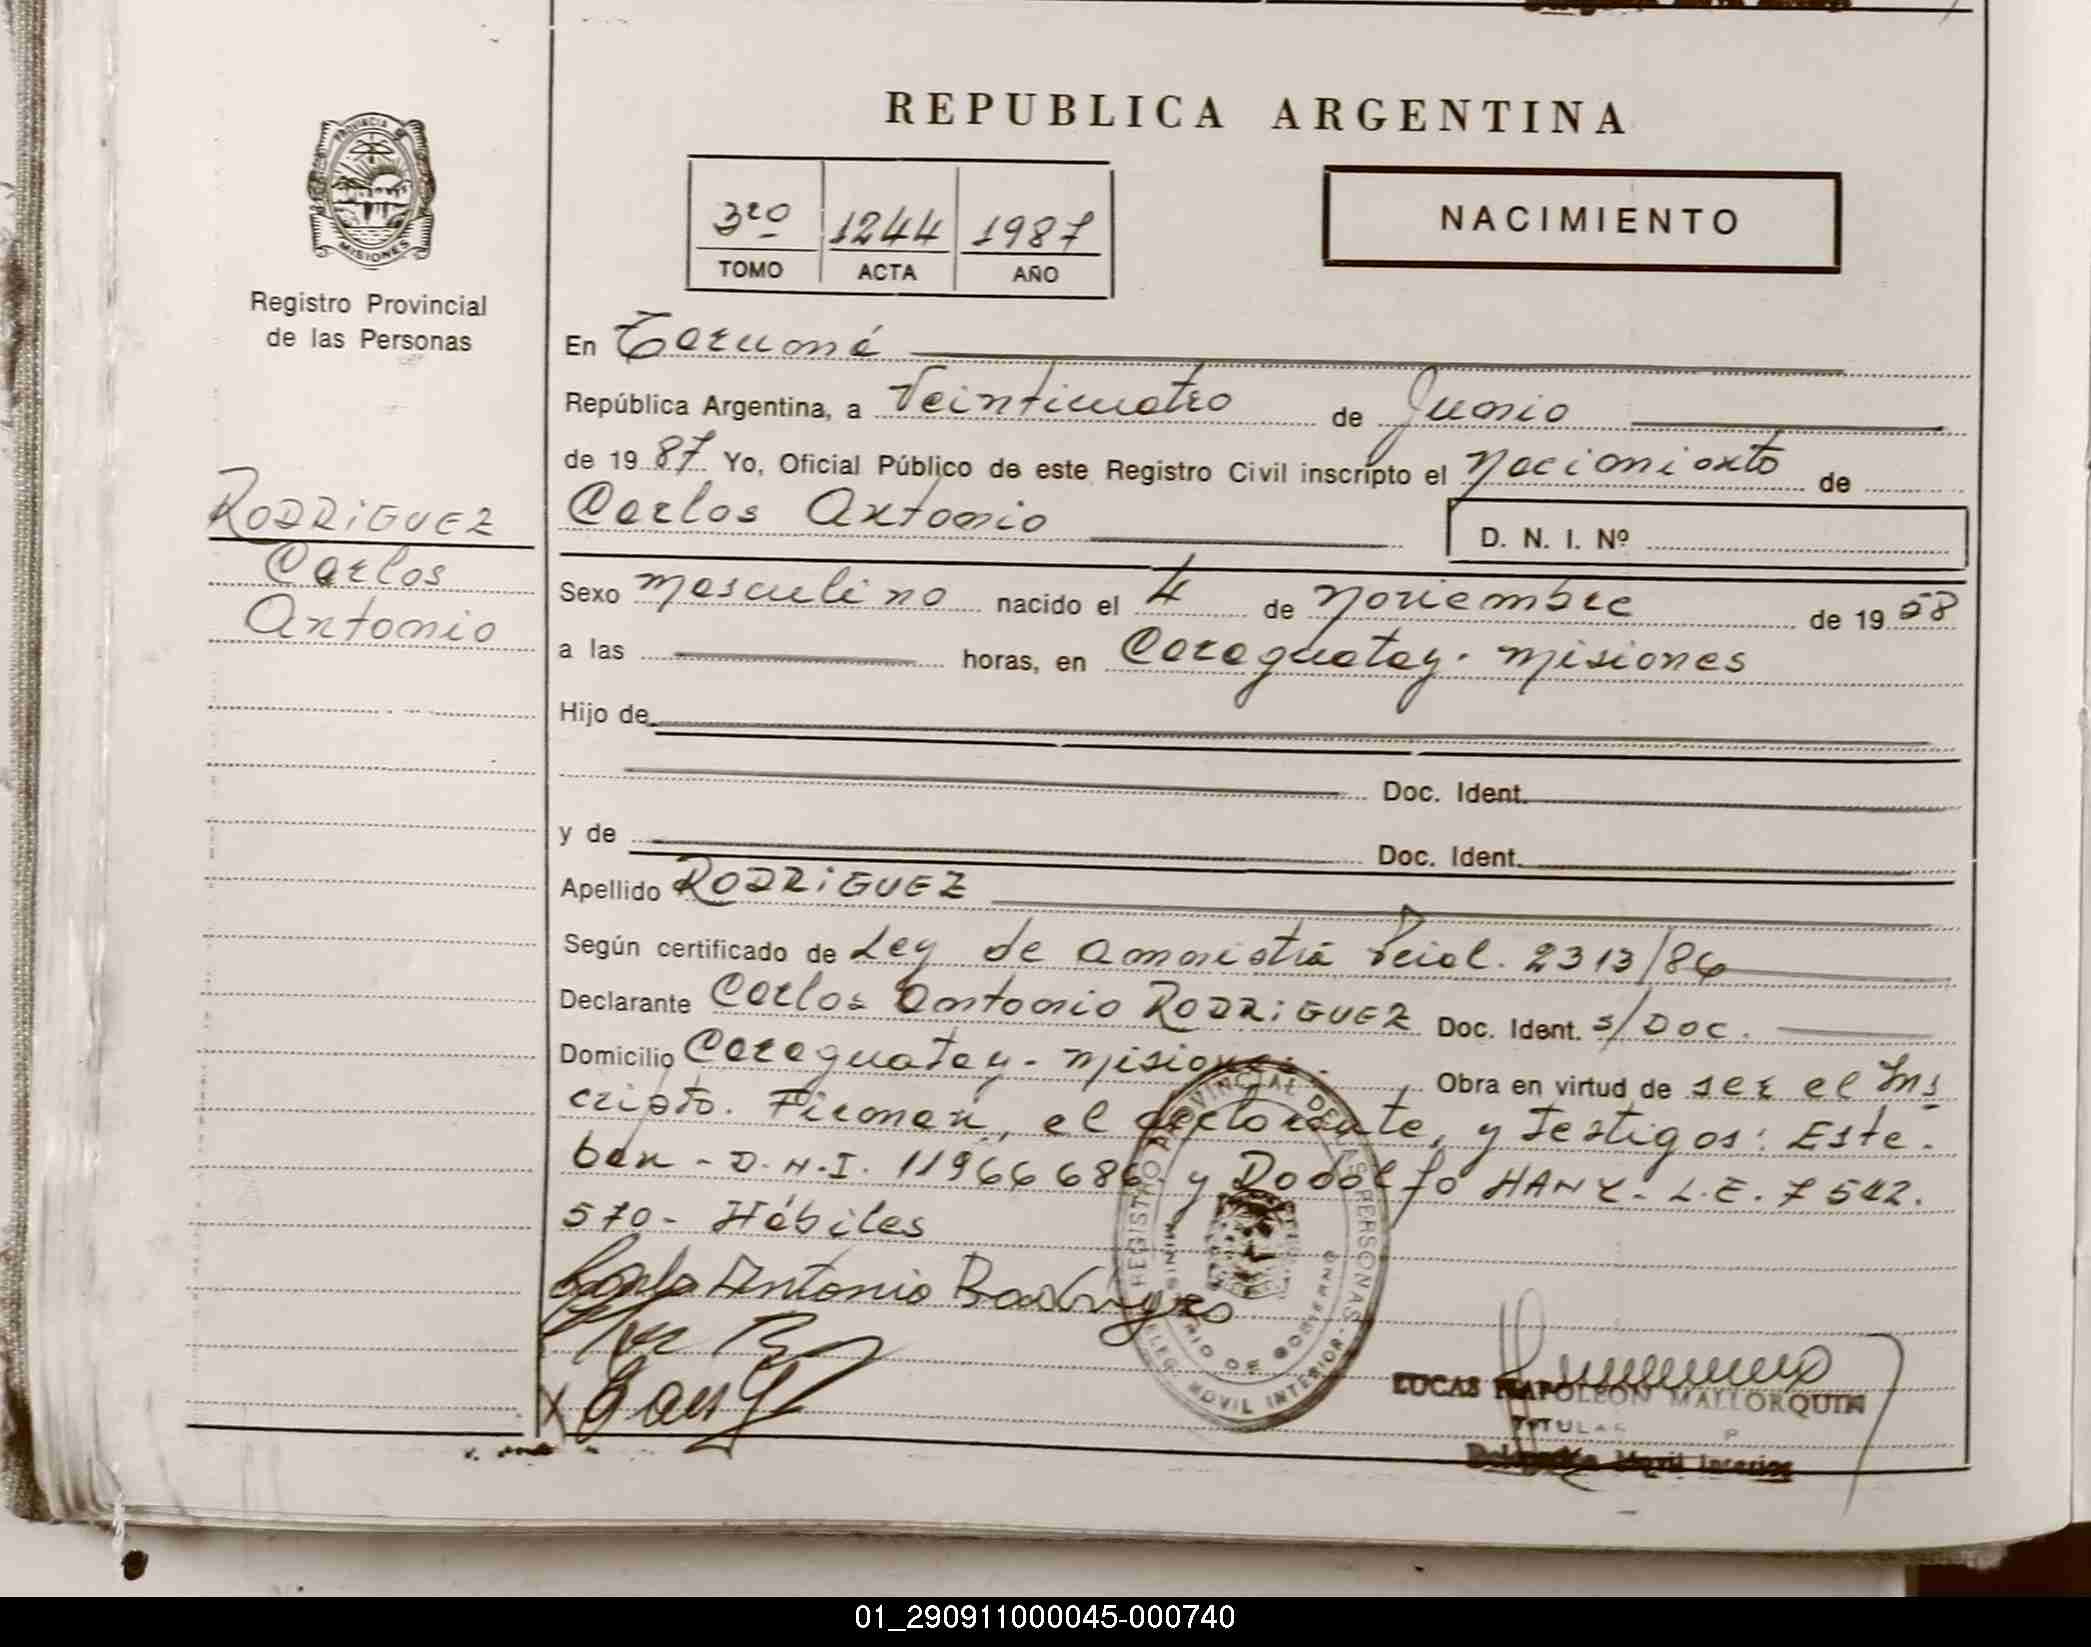 REPUBLICA ARGENTINA
PROVINCIA DE
MISIONES
Registro Provincial
de las Personas
3ro 1244 1987
TOMO ACTA AÑO
NACIMIENTO
En Tarumá
República Argentina, a Veinticuatro de Junio
de 1987 Yo, Oficial Público de este Registro Civil inscripto el nacimiento de
Carlos Antonio
D. N. I. Nº
RODRiGUEZ
Carlos
Antonio
Sexo masculino nacido el 4 de noviembre de 1958
a las horas, en Caraguatay - Misiones
Hijo de
Doc. Ident.
y de Doc. Ident.
Apellido RODRiGUEZ
Según certificado de Ley de amnistía 2313/86
Declarante Carlos Antonio RODRiGUEZ Doc. Ident. s/Doc.
Domicilio Caraguatay - Misiones. Obra en virtud de ser el Ins
cripto. Firman, el declarante, y Testigos: Este-
ban - D.N.I. 11966686 y Rodolfo HANY - L.E. 7542.
570- Hábiles
Carlo Antonio Rodrigez
REGISTRO PROVINCIAL DE LAS PERSONAS
MINISTERIO DE GOBIERNO
DELEG. MOVIL INTERIOR
LUCAS NAPOLEON MALLORQUIN
TITULAR
Delegación Movil Interior
01_290911000045-000740